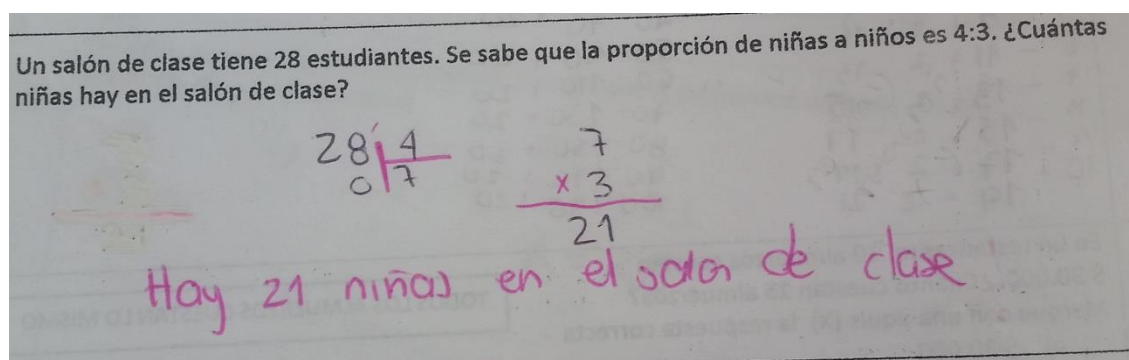 Un salón de clase tiene 28 estudiantes. Se sabe que la proporción de niñas a niños es 4:3. ¿Cuántas
niñas hay en el salón de clase?
28 4
0 7
7
x 3
21
Hay 21 niñas en el salon de clase